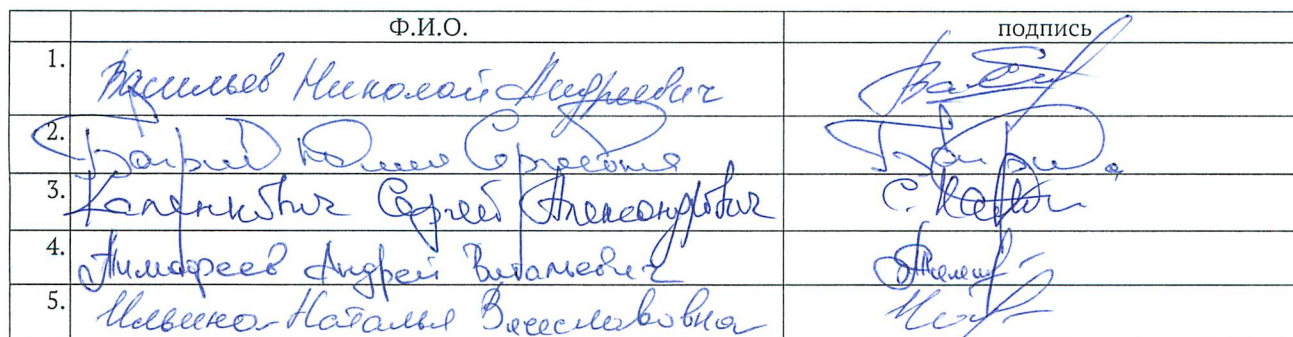 Ф.И.О. подпись
1. Васильев Николай Андреевич
2. Сергеевна
3. Капенкович Сергей Александрович
4. Тимофеев Андрей Витальевич
5. Ильина Наталья Вячеславовна